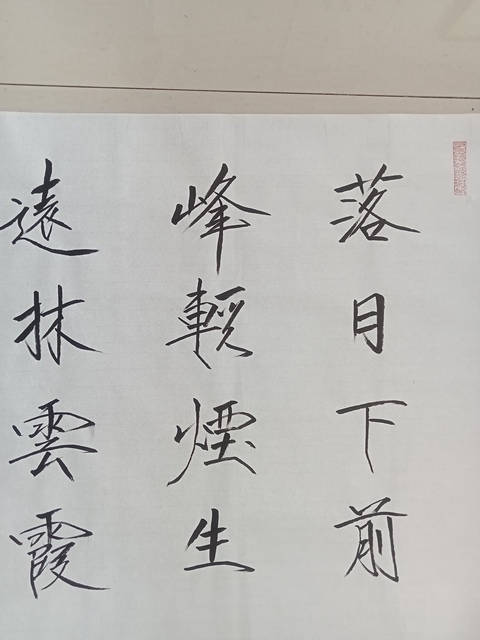 落月下前
峰輕煙生
遠林雲霞